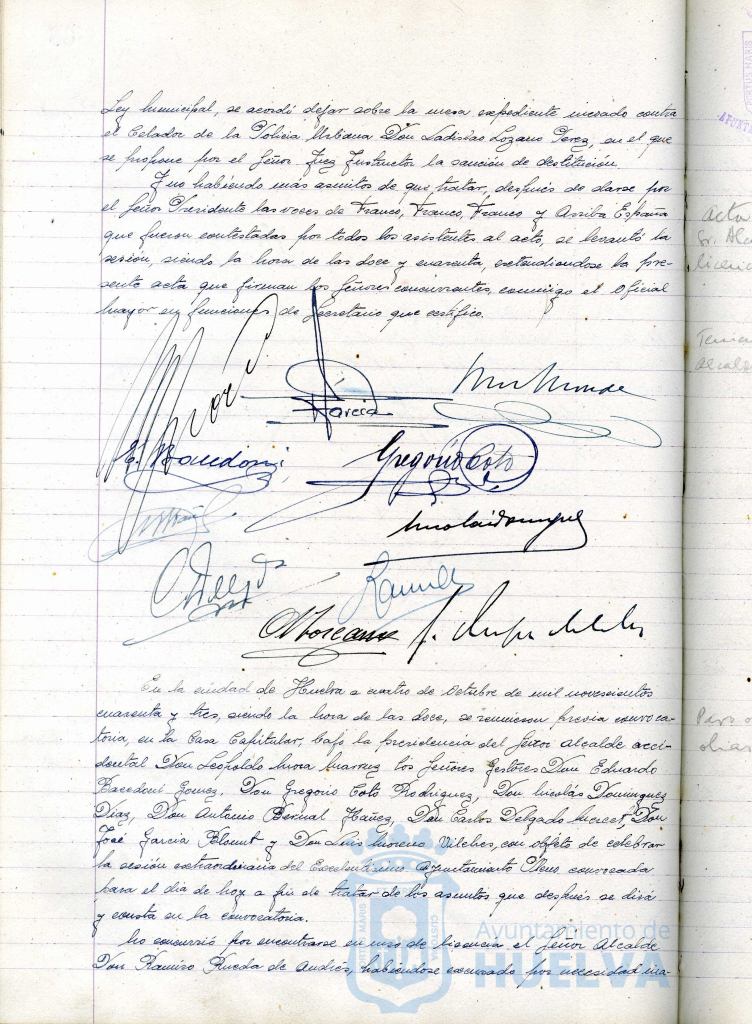 Ley Municipal, se acordó dejar sobre la mesa expediente incoado contra
el Celador de la Policia Urbana Don Ladislao Lozano Perez, en el que
se propone por el Señor Juez Instructor la sanción de destitución.
Y no habiendo mas asuntos de que tratar, después de darse por
el Señor Presidente las voces de Franco, Franco, Franco y Arriba España
que fueron contestadas por todos los asistentes al acto, se levantó la
sesión, siendo la hora de las doce y cuarenta, extendiendose la pre-
sente acta que firman los Señores concurrentes, conmigo el Oficial
Mayor en funciones de Secretario que certifico.
Garcia
E. Bacedoni
Gregorio Coto
Nicolás Dominguez
En la ciudad de Huelva a cuatro de Octubre de mil novecientos
cuarenta y tres, siendo la hora de las doce, se reunieron previa convoca-
toria, en la Casa Capitular, bajo la presidencia del Señor Alcalde acci-
dental Don Leopoldo Mora los Señores Gestores Don Eduardo
Bacedoni Gomez, Don Gregorio Coto Rodriguez, Don Nicolás Dominguez
Diaz, Don Antonio Bernal Ibañez, Don Carlos Delgado Don
José Garcia y Don Luis Moreno Vilches, con objeto de celebrar
la sesión extraordinaria del Excelentisimo Ayuntamiento Pleno convocada
para el dia de hoy a fin de tratar de los asuntos que después se dirá
y consta en la convocatoria.
No concurrió por encontrarse en uso de licencia el Señor Alcalde
Don Ramiro Rueda de Andrés, habiéndose excusado por necesidad ina-
Acta
Sr. Alc
licenc
Tenien
alcald
PORTUS MARIS CUSTODIA
Ayuntamiento de
HUELVA